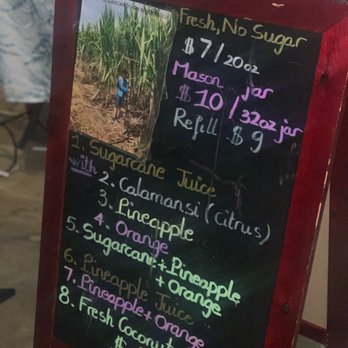 Fresh, No Sugar
$7/20oz
Mason jar
$10/32oz jar
Refill $9
1. Sugarcane Juice
with 2. Calamansi (Citrus)
3. Pineapple
4. Orange
5. Sugarcane + Pineapple
+ Orange
6. Pineapple Juice
7. Pineapple + Orange
8. Fresh Coconut
$